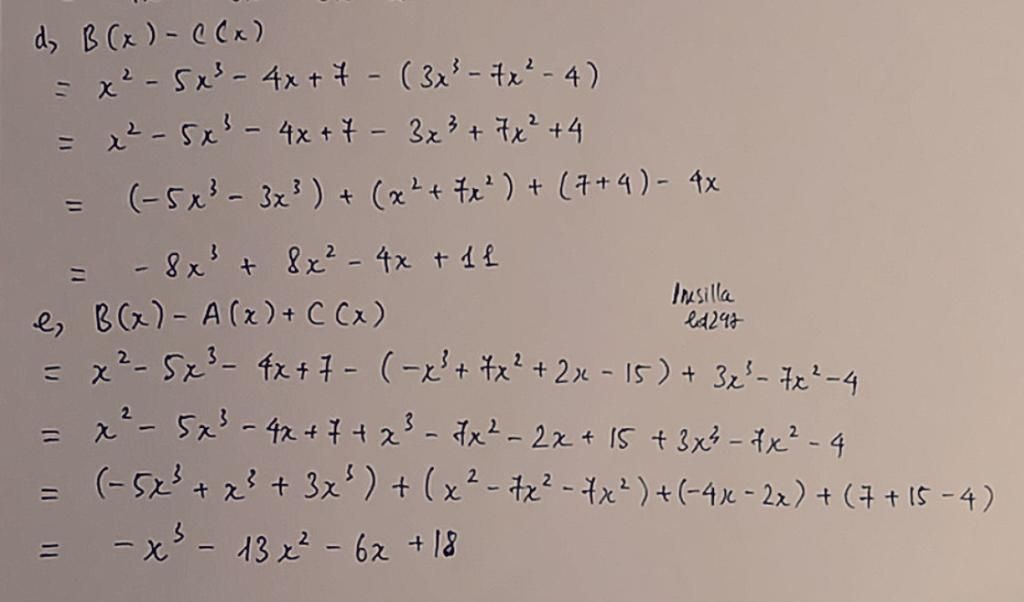 d, B(x) - C(x)
= x² - 5x³ - 4x + 7 - (3x³ - 7x² - 4)
= x² - 5x³ - 4x + 7 - 3x³ + 7x² + 4
= (-5x³ - 3x³) + (x² + 7x²) + (7 + 4) - 4x
= - 8x³ + 8x² - 4x + 11
e, B(x) - A(x) + C(x)
= x² - 5x³ - 4x + 7 - (-x³ + 7x² + 2x - 15) + 3x³ - 7x² - 4
= x² - 5x³ - 4x + 7 + x³ - 7x² - 2x + 15 + 3x³ - 7x² - 4
= (-5x³ + x³ + 3x³) + (x² - 7x² - 7x²) + (-4x - 2x) + (7 + 15 - 4)
= - x³ - 13x² - 6x + 18